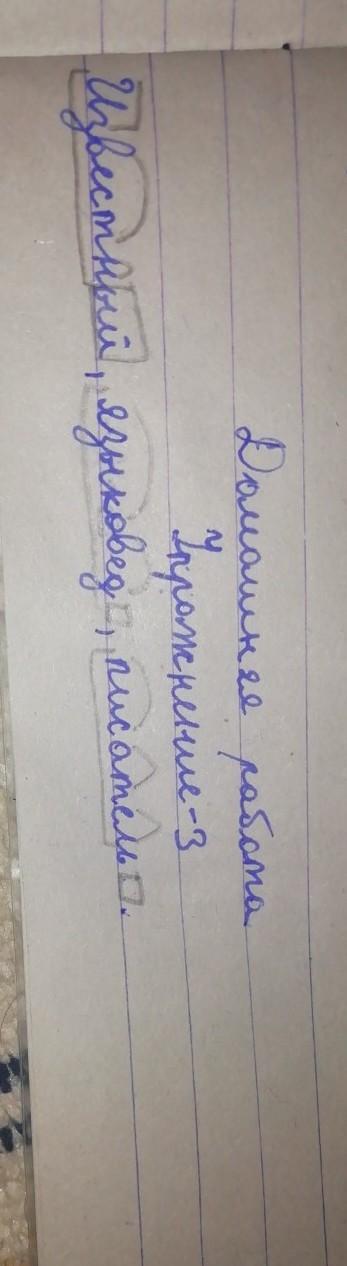 Домашняя работа
Упражнение-3
Известный, языковед, писатель.